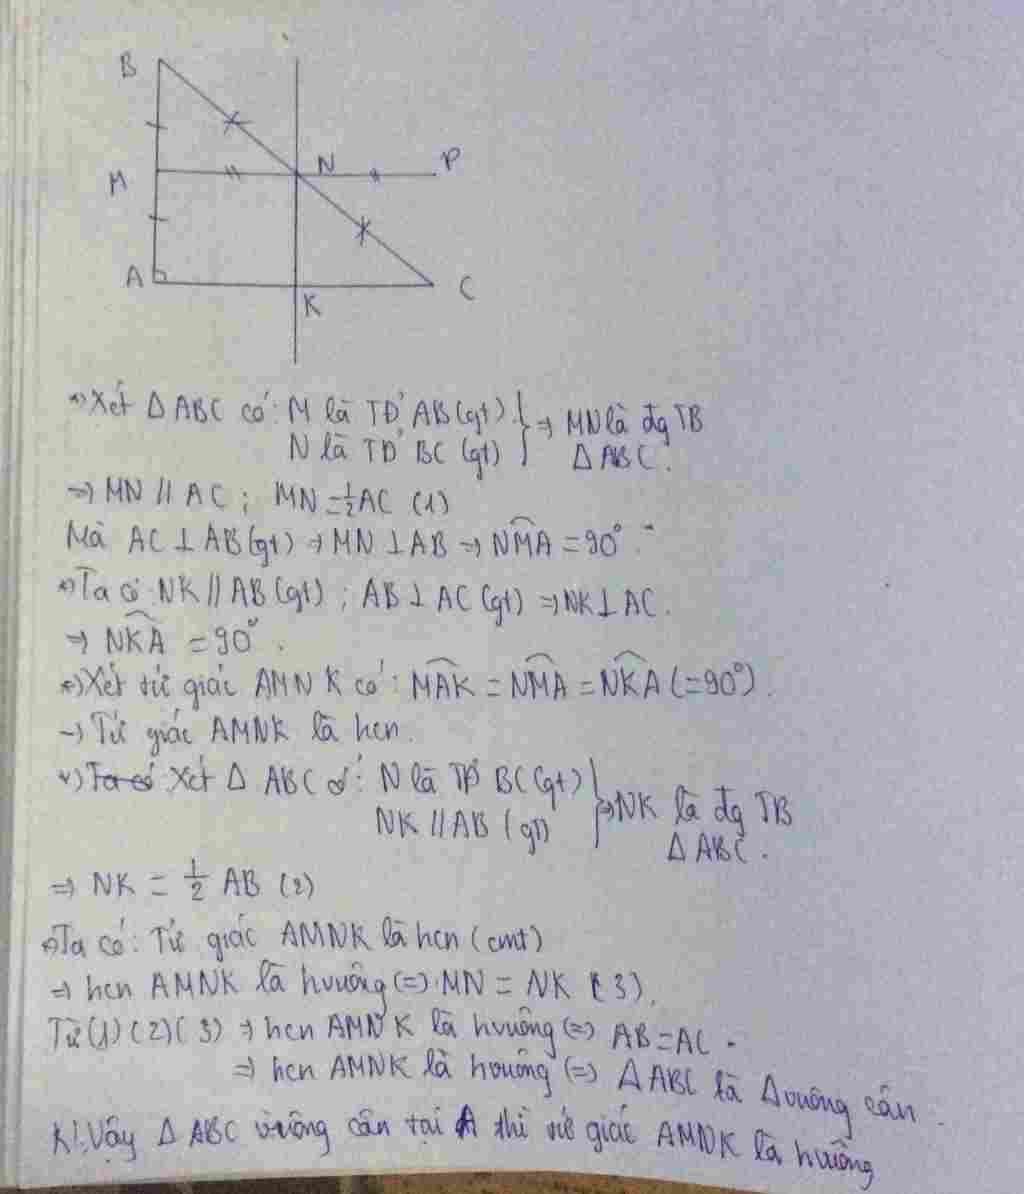 B
N
P
M
A
C
K
*) Xét Δ ABC có: M là TĐ' AB (gt) } => MN là đg TB
N là TĐ' BC (gt) } Δ ABC.
=> MN // AC ; MN = 1/2 AC (1)
Mà AC ⊥ AB (gt) => MN ⊥ AB => NMA = 90°
*) Ta có NK // AB (gt) ; AB ⊥ AC (gt) => NK ⊥ AC.
=> NKA = 90°.
*) Xét tứ giác AMNK có: MAK = NMA = NKA (=90°).
-) Tứ giác AMNK là hcn.
*) Ta có Xét Δ ABC có: N là TĐ' BC (gt) } => NK là đg TB
NK // AB (gt) } Δ ABC.
=> NK = 1/2 AB (2)
*) Ta có: Tứ giác AMNK là hcn (cmt)
=> hcn AMNK là hvuông (=) MN = NK (3).
Từ (1) (2) (3) => hcn AMNK là hvuông (=) AB = AC.
=> hcn AMNK là hvuông (=) Δ ABC là Δ vuông cân.
Kl: Vậy Δ ABC vuông cân tại A thì tứ giác AMNK là hvuông